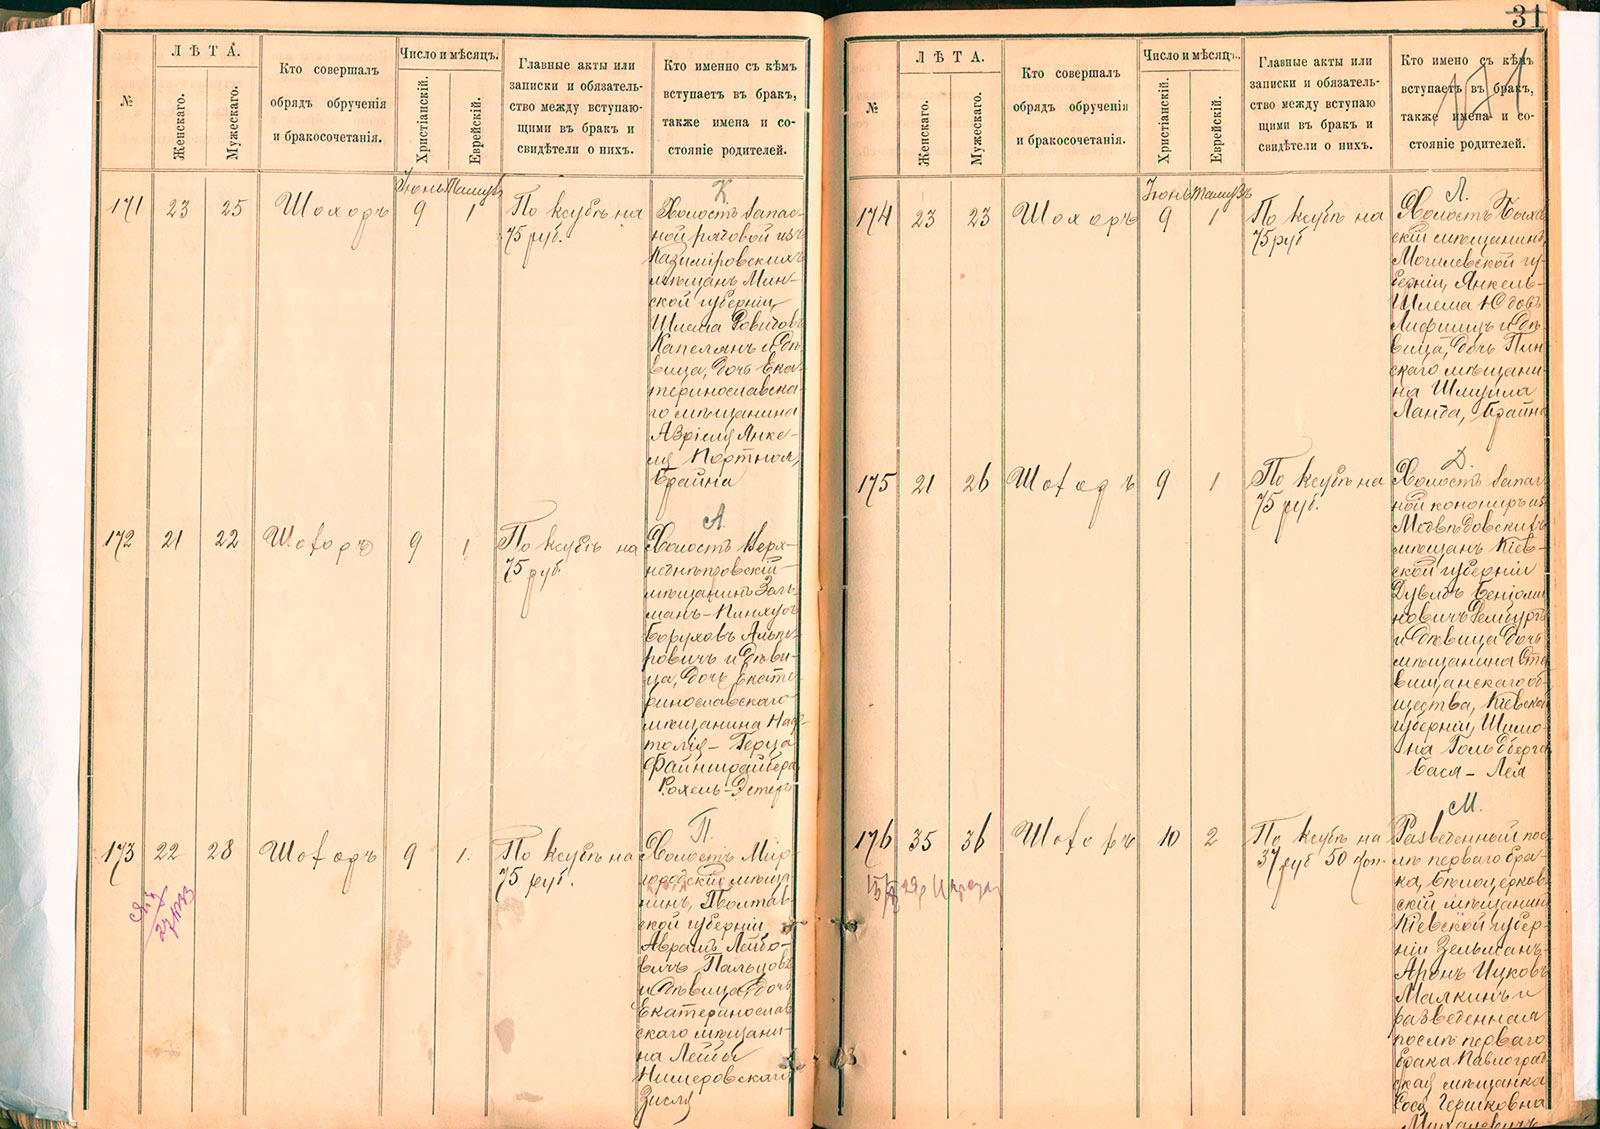 №
ЛѢТА.
Женскаго.
Мужескаго.
Кто совершалъ
обрядъ обрученія
и бракосочетанія.
Число и мѣсяцъ.
Христіанскій.
Еврейскій.
Главные акты или
записки и обязатель-
ство между вступаю-
щими въ бракъ и
свидѣтели о нихъ.
Кто именно съ кѣмъ
вступаетъ въ бракъ,
также имена и со-
стояніе родителей.
Іюнь Тамузъ
171 23 25 Шохоръ 9 1
По ксубѣ на
75 руб.
К.
Холостъ запас-
ной рядовой изъ
Казиміровскихъ
мѣщанъ Мин-
ской губерніи
Шлема
Капелянъ и дѣ-
вица, дочь Ека-
теринославска-
го мѣщанина
Азріеля Янке-
ля Портноя,
Брайна
172 21 22 Шохоръ 9 1
По ксубѣ на
75 руб.
А.
Холостъ Верх-
неднѣпровскій
мѣщанинъ Зель-
манъ-Пинхусъ
Боруховъ Альпе-
ровичъ и дѣви-
ца, дочь Екате-
ринославскаго
мѣщанина Наф-
толія-Герца
Файнштайбера
Рохель-Эстеръ
173 22 28 Шохоръ 9 1.
По ксубѣ на
75 руб.
П.
Холостъ Мир-
городскій мѣща-
нинъ, Полтав-
ской губерніи
Авраамъ Лейбо-
вичъ Пальцовъ
и дѣвица, дочь
Екатеринослав-
скаго мѣщани-
на Лейбы
Нимеровскаго,
Зисля
31
171
№
ЛѢТА.
Женскаго.
Мужескаго.
Кто совершалъ
обрядъ обрученія
и бракосочетанія.
Число и мѣсяцъ.
Христіанскій.
Еврейскій.
Главные акты или
записки и обязатель-
ство между вступаю
щими въ бракъ и
свидѣтели о нихъ.
Кто имено съ кѣмъ
вступаетъ въ бракъ,
также имена и со-
стояніе родителей.
Іюнь Тамузъ
174 23 23 Шохоръ 9 1
По ксубѣ на
75 руб
Л.
Холостъ Быхов-
скій мѣщанинъ,
Могилевской гу-
берніи Янкель-
Шлема Юдовъ
Лифшицъ и дѣ-
вица, дочь Пин-
скаго мѣщани-
на Шмуйла
Ланда, Брайна
175 21 26 Шохоръ 9 1
По ксубѣ на
75 руб.
Д.
Холостъ запас-
ной канониръ изъ
мѣщанъ Кіев-
ской губерніи
Дувидъ Беніоми-
новичъ
и дѣвица дочь
мѣщанина Ста-
вищанскаго об-
щества, Кіевской
губерніи, Шимо-
на Гольдберга
Бася-Лея
176 35 36 Шохоръ 10 2
По ксубѣ на
37 руб 50 коп.
М.
Разведенный пос-
лѣ перваго бра-
ка, Бѣлоцерков-
скій мѣщанинъ
Кіевской губер-
ніи Зельманъ-
Аронъ Ицковъ
Малкинъ и
разведенная
послѣ перваго
брака Павлоград-
ская мѣщанка
Сося Гершковна